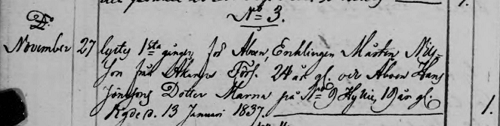 No 3.
D.
November 27 lystes 1sta gången för Åboen, Enklingen Mårten Nils-
son från Törf. 24 år gl. och Åboen Hans
Jönssons Dotter Marna på No 9 Hyllie, 19 år gl.
13 Januari 1837.
1.